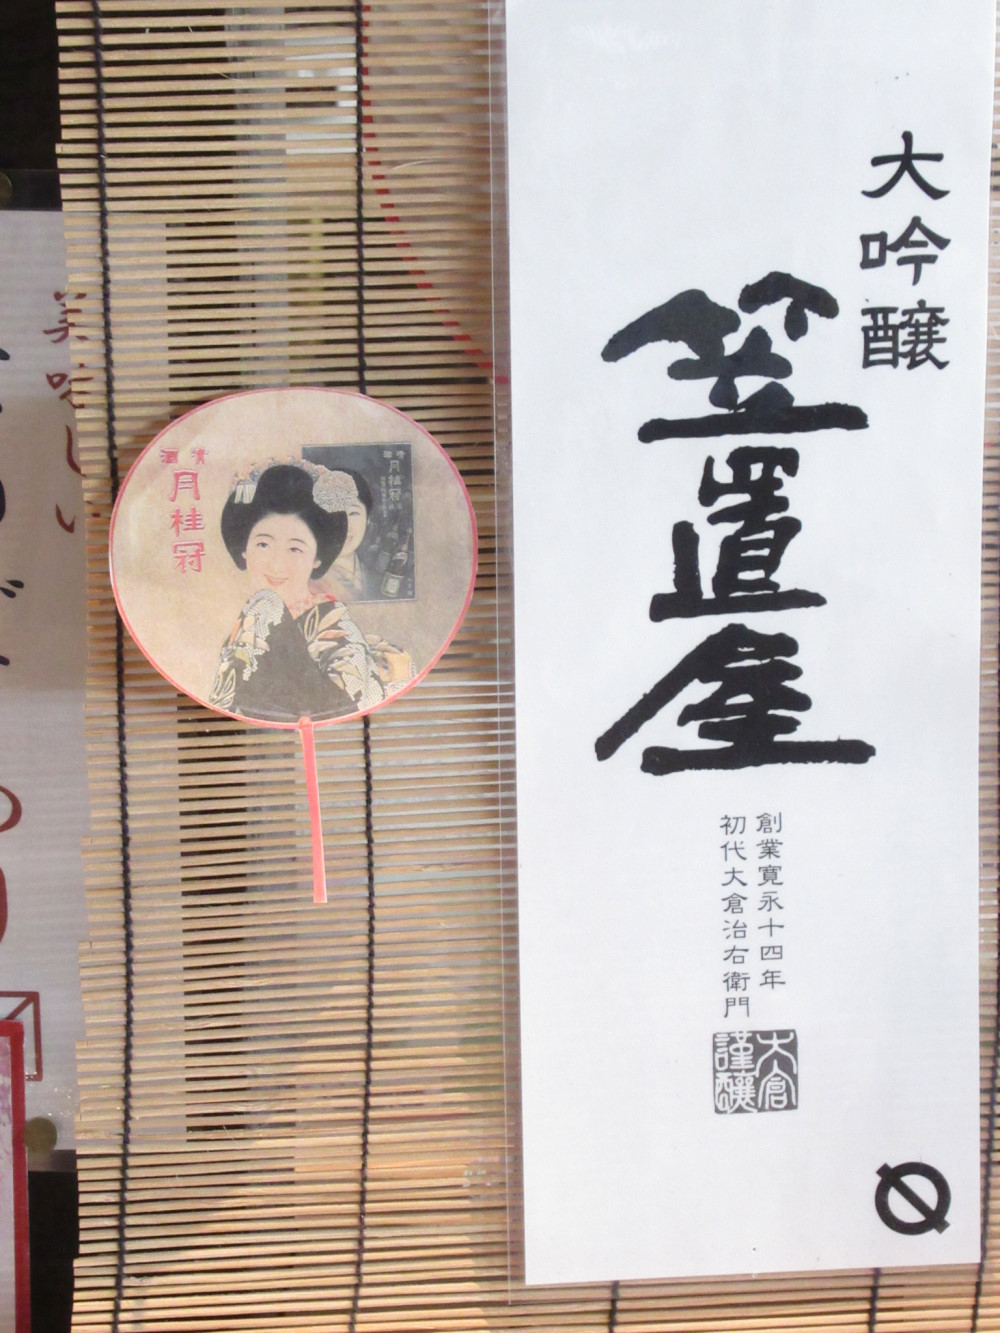 大吟醸
笠置屋
創業寛永十四年
初代大倉治右衛門
大倉
謹醸
清酒
月桂冠
清酒
月桂冠
美味しい